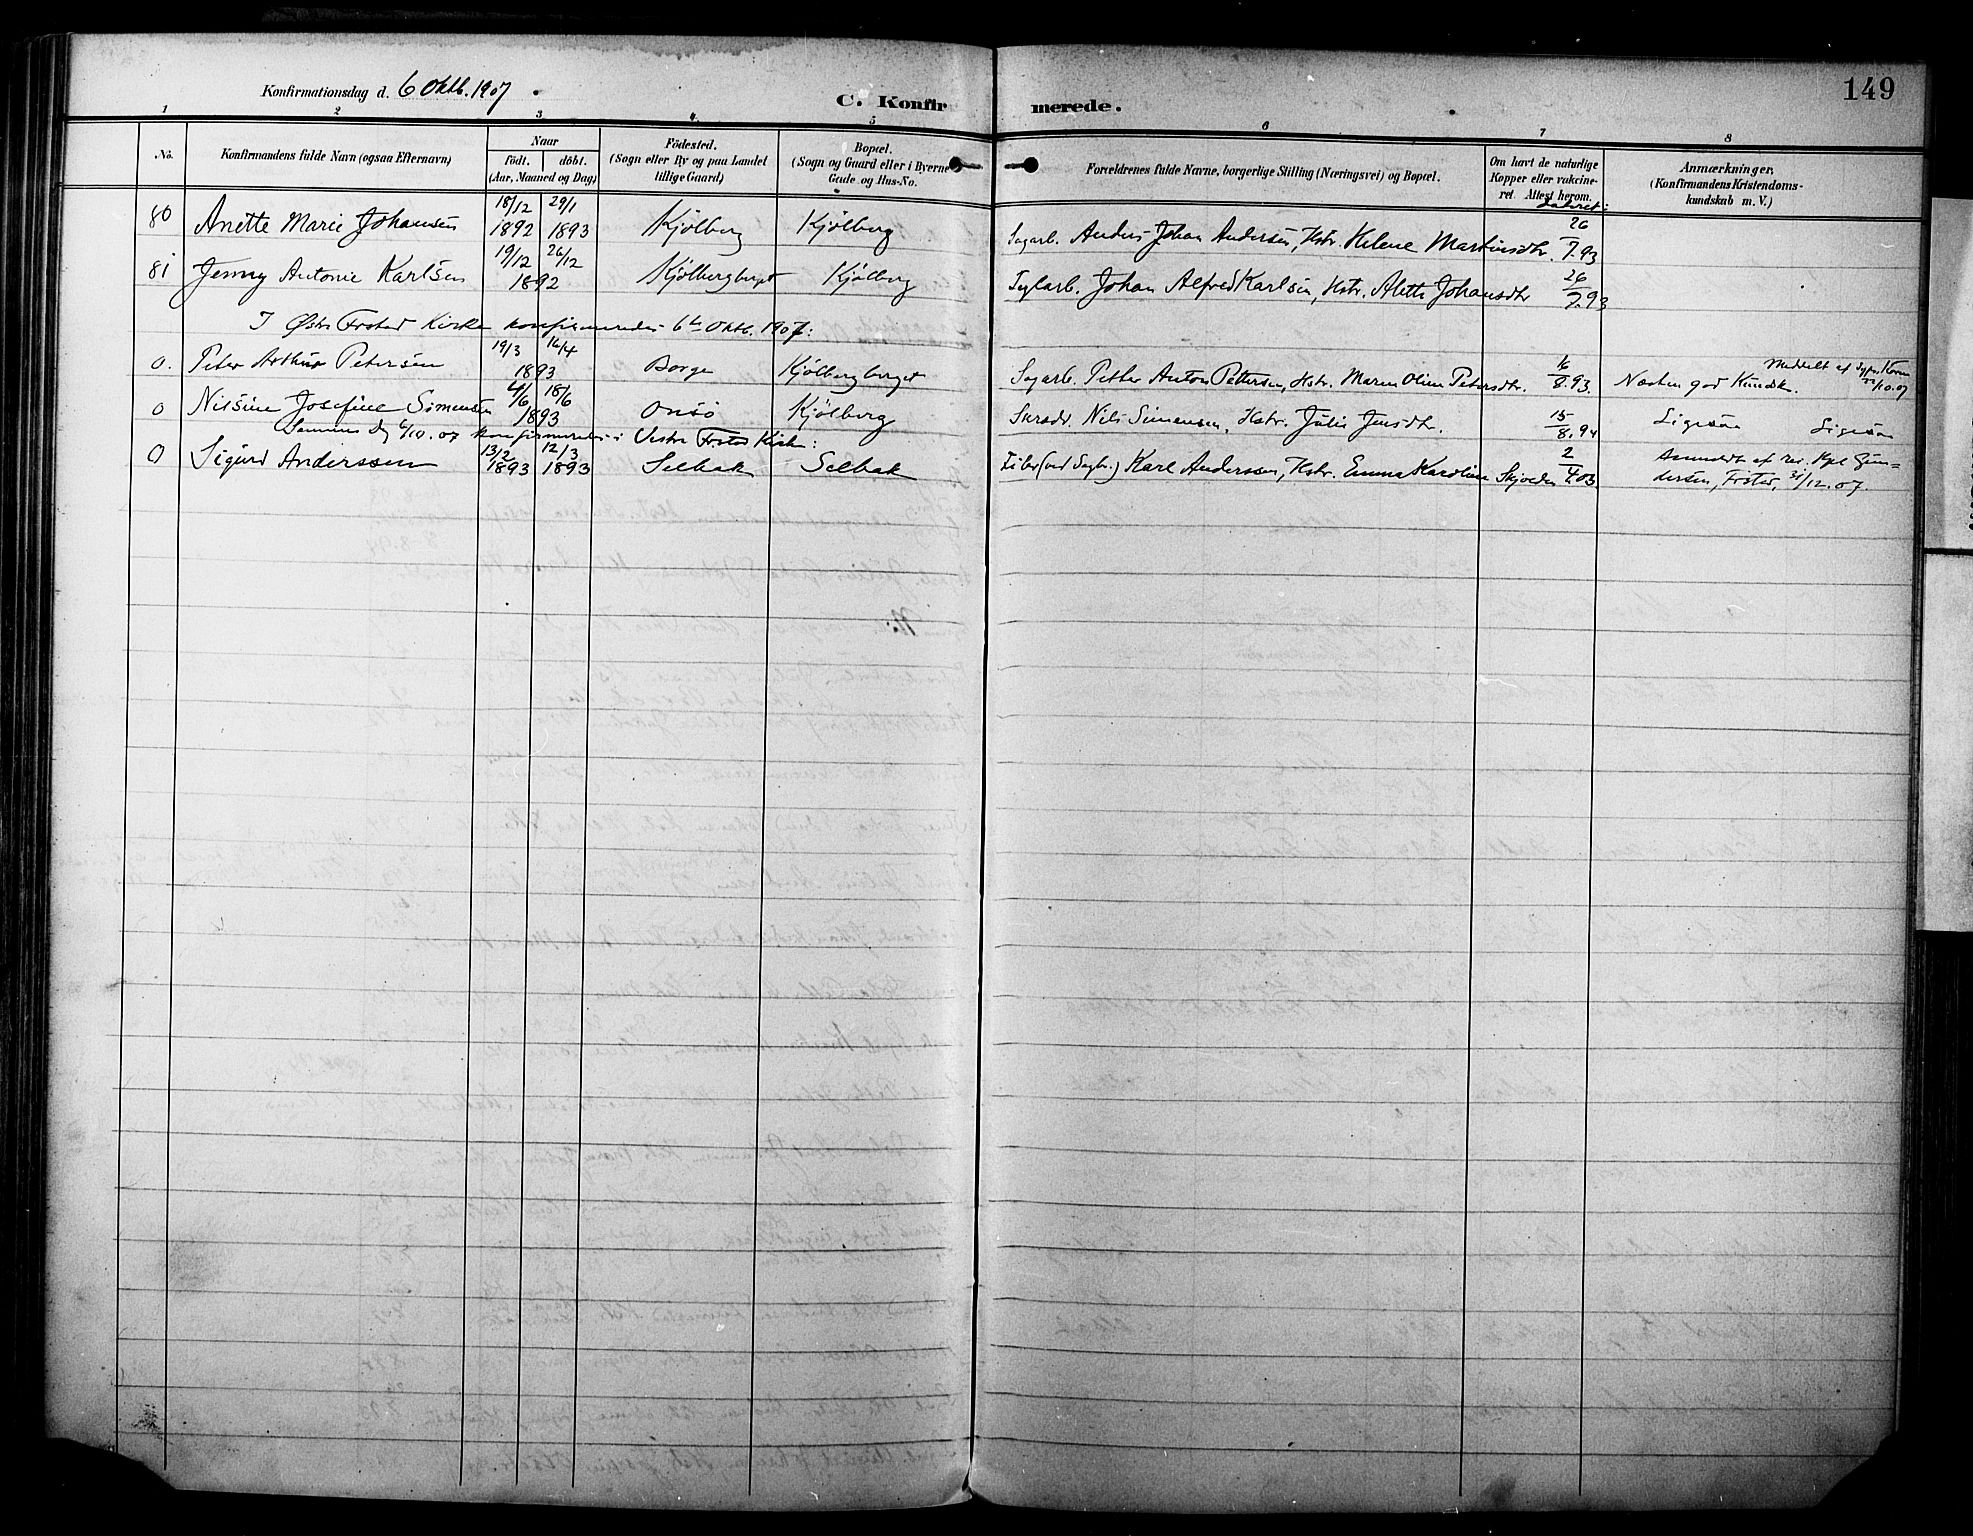 Konfirmationsdag d. 6 Oktb. 1907.
C. Konfirmerede.
149
1 2 3 4 5 6 7 8
No.
Konfirmandens fulde Navn (ogsaa Efternavn)
Naar
født. døbt.
(Aar, Maaned og Dag)
Fødested.
(Sogn eller By og paa Landet
tillige Gaard)
Bopæl.
(Sogn og Gaard eller i Byerne
Gade og Hus-No.
Forældrenes fulde Navne, borgerlige Stilling (Næringsvei) og Bopæl.
Om havt de naturlige
Kopper eller vakcine-
ret. Attest herom.
Dateret:
Anmærkninger.
(Konfirmandens Kristendoms-
kundskab m. V.)
80 Anette Marie Johansen 18/12 1892 29/1 1893 Kjølberg Kjølberg Sagarb. Anders Johan Andersen, Hstr. Helene Martinsdtr. 26/7.93
81 Jenny Antonie Karlsen 19/12 26/12 1892 Kjølbergberget Kjølberg Teglarb. Johan Alfred Karlsen, Hstr. Alette Johansdtr 26/7.93
I Østre Frstad Kirke konfirmeredes 6te Oktb. 1907:
0. Peter Arthur Petersen 19/3 16/4 1893 Borge Kjølbergberget Sagarb. Petter Anton Pettersen, Hstr. Maren Oline Petersdtr. 6/8.93. Næsten god Kundsk. Meddelt af /10.07
0 Nilsine Josefine Simensen 4/6 18/6 1893 Onsø Kjølberg Skrædr Nils Simensen, Hstr. Julie Jensdtr. 15/8.94 Ligesaa Ligesaa
Samme Dag 6/10.07 konfirmeredes i Vestre Frstad Kirke:
0 Sigurd Anderssen 13/2 1893 12/3 1893 Selbak Selbak (ved Sagbr.) Karl Anderssen, Hstr. Emma Karoline 2/4.03 Anmeldt af res. Kpl. Gun-
dersen, Frstad, 31/12.07.